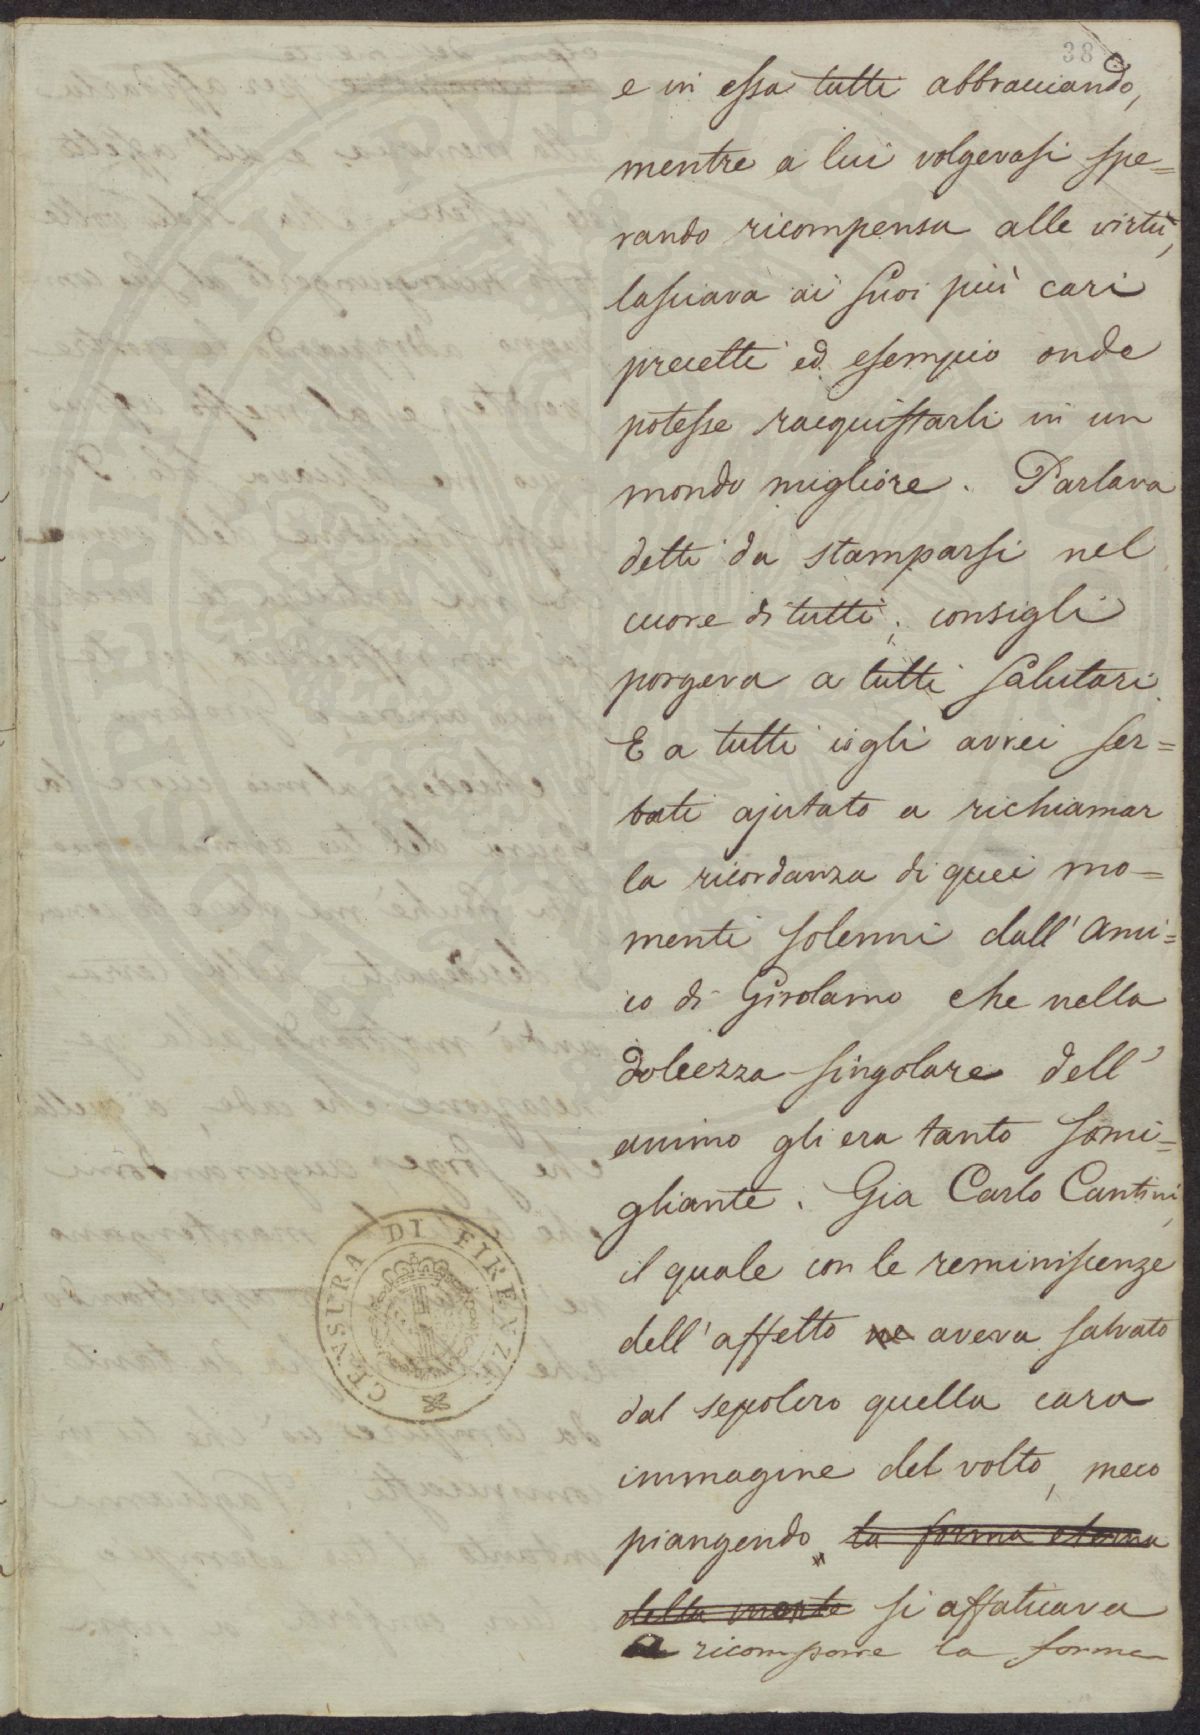 38
e in essa tutti abbracciando,
mentre a lui volgevasi spe=
rando ricompensa alle virtù,
lasciava ai suoi più cari
precetti ed esempio onde
potesse racquistarli in un
mondo migliore. Parlava
detti da stamparsi nel
cuore di tutti; consigli
porgeva a tutti salutari.
E a tutti io gli avrei ser=
bati ajutato a richiamar
la ricordanza di quei mo=
menti solenni dall'ami=
co di Girolamo che nella
dolcezza singolare dell'
animo gli era tanto somi=
gliante. Gia Carlo Cantini,
il quale con le reminiscenze
dell'affetto ne aveva salvato
dal sepolcro quella cara
immagine del volto, meco
piangendo la forma eterna
della morte si affaticava
a ricomporre la forma
CENSURA DI FIRENZE